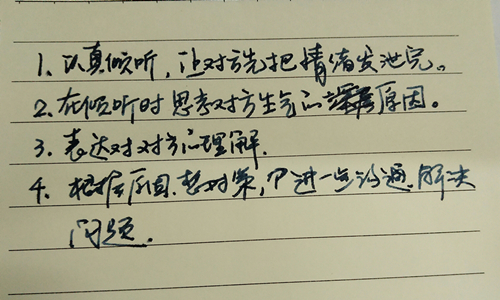 1、认真倾听，让对方先把情绪发泄完。
2、在倾听时思考对方生气的深层原因。
3、表达对对方的理解.
4、根据原因.想对策,进一步沟通.解决
问题.